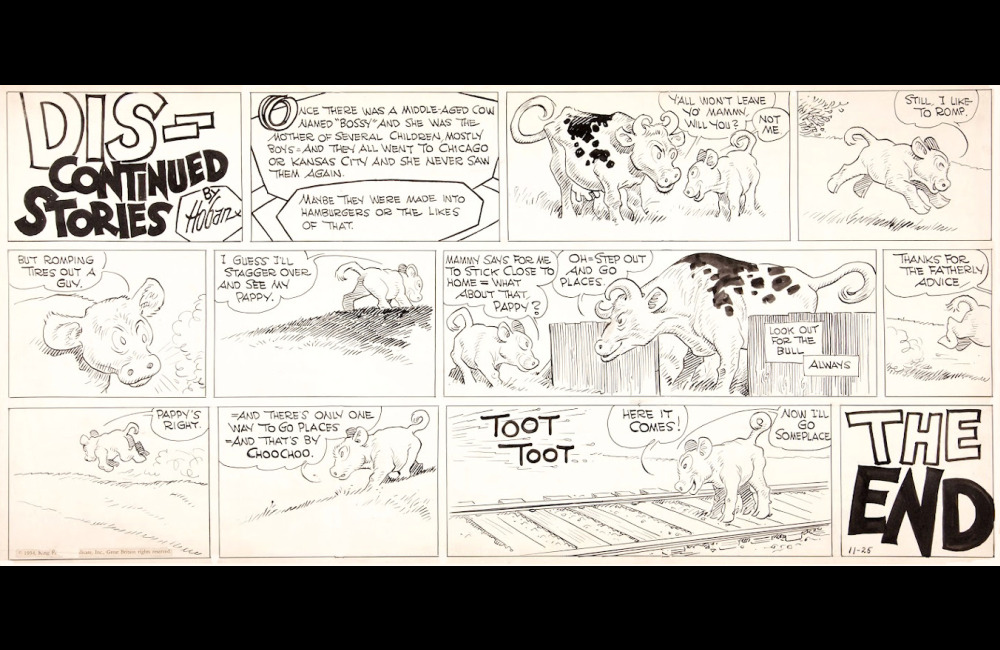 DIS-
CONTINUED
STORIES
BY
Hoban
ONCE THERE WAS A MIDDLE-AGED COW
NAMED "BOSSY" AND SHE WAS THE
MOTHER OF SEVERAL CHILDREN, MOSTLY
BOYS = AND THEY ALL WENT TO CHICAGO
OR KANSAS CITY AND SHE NEVER SAW
THEM AGAIN.
MAYBE THEY WERE MADE INTO
HAMBURGERS OR THE LIKES
OF THAT.
Y'ALL WON'T LEAVE
YO' MAMMY,
WILL YOU?
NOT
ME.
STILL, I LIKE
TO ROMP.
BUT ROMPING
TIRES OUT A
GUY.
I GUESS I'LL
STAGGER OVER
AND SEE MY
PAPPY.
MAMMY SAYS FOR ME
TO STICK CLOSE TO
HOME = WHAT
ABOUT THAT,
PAPPY?
OH = STEP OUT
AND GO
PLACES.
LOOK OUT
FOR THE
BULL
ALWAYS
THANKS FOR
THE FATHERLY
ADVICE.
PAPPY'S
RIGHT.
=AND THERE'S ONLY ONE
WAY TO GO PLACES
=AND THAT'S BY
CHOOCHOO.
TOOT
TOOT
HERE IT
COMES!
NOW I'LL
GO
SOMEPLACE
THE
END
11-25
Inc., Great Britain rights reserved